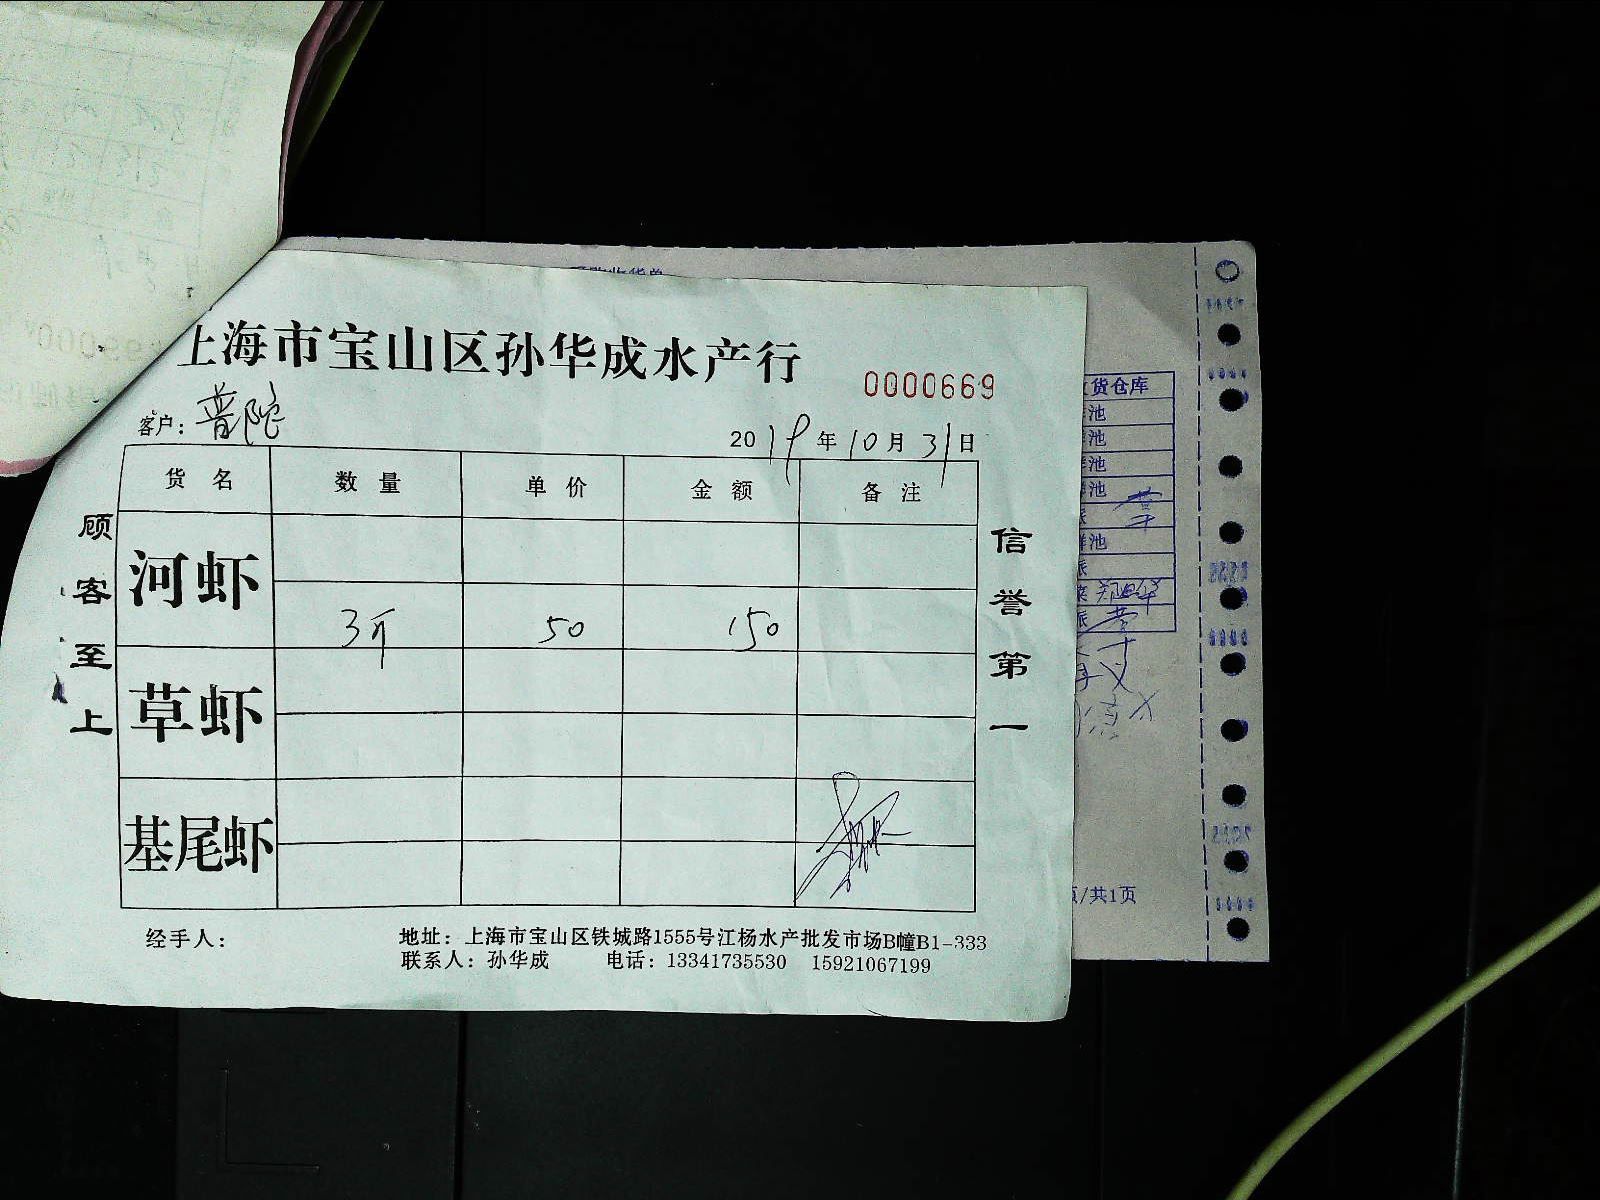 上海市宝山区孙华成水产行
0000669
客户：普陀
2019年10月31日
货名 数量 单价 金额 备注
河虾
3斤 50 150
草虾
基尾虾
顾客至上
信誉第一
经手人：
地址：上海市宝山区铁城路1555号江杨水产批发市场B幢B1-333
联系人：孙华成 电话：13341735530 15921067199
货仓库
池
池
池
池
池
页/共1页